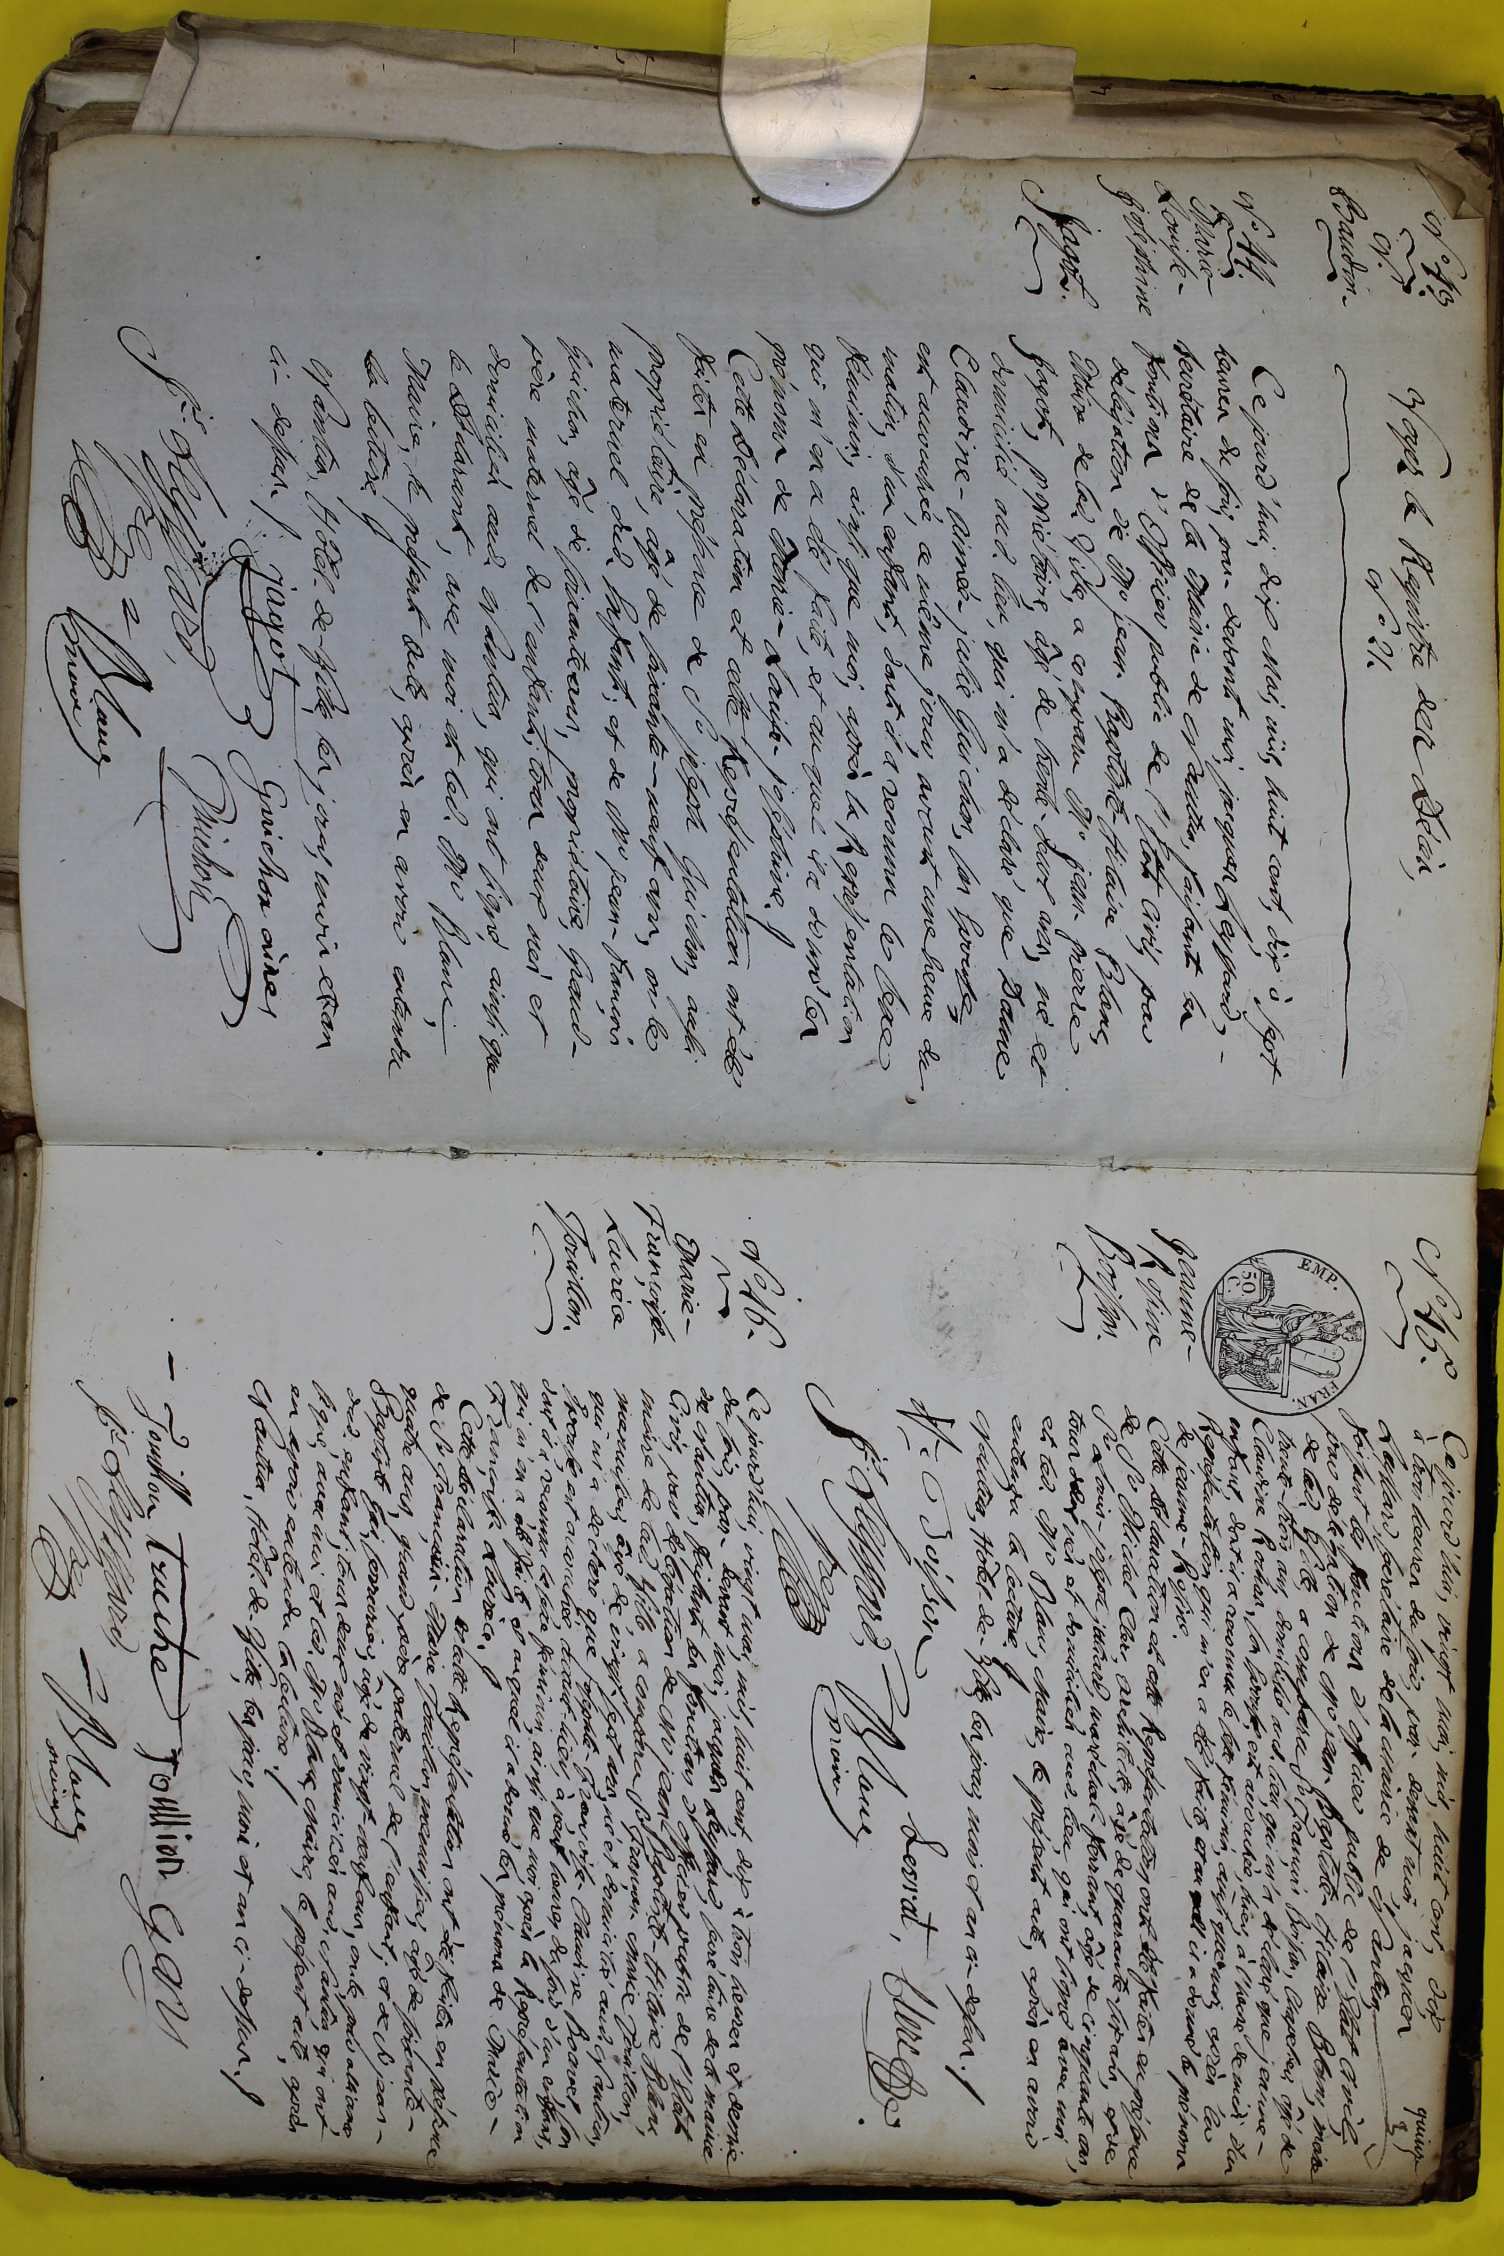 N.° 13
N.
Baudin.
Voyez le Registre des Décès,
N.° 21.
N.° 14.
Marie-
Louise-
Joséphine
Jagot.
Ce jourd'hui, dix Mai, mil huit cent, dix à sept
heures du soir, par-devant moi, jacques Leffard,
secrétaire de la Mairie de Nantua, faisant les
fonctions d'Officier public de l'État civil, par
délégation de Mr jean-Baptiste-Hilaire Blanc,
Maire de lad. Ville, a comparu Mr jean-pierre
Jagot, propriétaire, âgé de trente-deux ans, né et
domicilié aud. lieu, qui m'a déclaré que Dame
Claudine-aimée-julie Guichon, son Epouse,
est accouchée, ce même jour, avant une heure du
matin, d'un enfant, dont il a reconnu le sexe
féminin, ainsi que moi, après la Représentation
qui m'en a été faite, et auquel il a donné les
prénoms de Marie-Louise-joséphine.
Cette Déclaration et cette Représentation ont été
faites en présence de Sr joseph Guichon, aussi
propriétaire, âgé de soixante-neuf ans, oncle
maternel dud. Enfant; et de Mr jean-François
Guichon, âgé de soixante ans, propriétaire, Grand-
père maternel de l'enfant; tous deux nés et
domiciliés aud. Nantua, qui ont signé, ainsi que
le Déclarant, avec moi et led. Mr Blanc,
Maire, le présent acte, après en avoir entendu
la lecture.
Nantua, Hôtel-de-Ville, les jour, mois et an
ci-dessus.
jagot Guichon ainé
Guichon
Jes Leffard,
Sre
Blanc
maire
quinze
N.° 15.
EMP. FRAN.
50 C
Jeanne-
Reine
Boisson.
Ce jourd'hui, vingt mai, mil, huit cent, dix
à trois heures du soir, par-devant moi, jacques
Leffard, secrétaire de la Mairie de Nantua,
faisant les fonctions d'Officier public de l'État civil,
par délégation de Mr jean-Baptiste-Hilaire Blanc, maire
de lad. Ville, a comparu Sr François Boisson, âgé de
trente-trois ans, domicilié aud. lieu, qui m'a déclaré que jeanne-
Claudine Rochon, son Epouse, est accouchée, hier, à l'heure de midi, d'un
enfant, dont il a reconnu le sexe féminin, ainsi que moi, après la
Représentation qui m'en a été faite, et auquel il a donné le prénom
de jeanne-Reine.
Cette Déclaration et cette Représentation ont été faites en présence
de Sr Michel Clerc, architecte, âgé de quarante-
Sr Louis- maréchal ferrant, âgé de cinquante ans,
tous deux nés et domiciliés aud. lieu, qui ont signé avec moi
et led. Mr Blanc, Maire, le présent acte, après en avoir
entendu la lecture.
Nantua, Hôtel-de-Ville, les jour, mois et an ci-dessus.
Boisson Clerc
Jes Leffard,
Sre
Blanc
maire
N.° 16.
Marie-
Françoise
Laurèce
Jouillon.
Ce jourd'hui, vingt mai, mil, huit cent, dix à trois heures et demie
du soir, par-devant moi, jacques Leffard, secrétaire de la mairie
de Nantua, faisant les fonctions d'Officier public de l'État
Civil, par délégation de Mr jean-Baptiste-Hilaire Blanc,
maire de lad. Ville, a comparu Sr François-Marie Jouillon,
menuisier, âgé de vingt-sept ans, né et domicilié aud. Nantua,
qui m'a déclaré que Françoise Claudine Bouvet, son
Epouse, est accouchée, avant-hier, à sept heures du soir, d'un enfant,
dont il a reconnu le sexe féminin, ainsi que moi, après la Représentation
qui m'en a été faite, et auquel il a donné les prénoms de Marie-
Françoise Laurèce.
Cette Déclaration et cette Représentation ont été faites en présence
de Sr François-Marie Jouillon, menuisier, âgé de soixante-
quatre ans, grand-père paternel de l'enfant; et de Sr jean-
Baptiste Gas, serrurier, âgé de vingt-neuf ans, oncle par alliance
dud. enfant; tous deux nés et domiciliés aud. Nantua, qui ont
signé, avec moi et led. Mr Blanc, Maire, le présent acte, après
en avoir entendu la lecture.
Nantua, Hôtel-de-Ville, les jour, mois et an ci-dessus.
Jouillon Jouillion Gas
Jes Leffard,
Sre
Blanc
maire